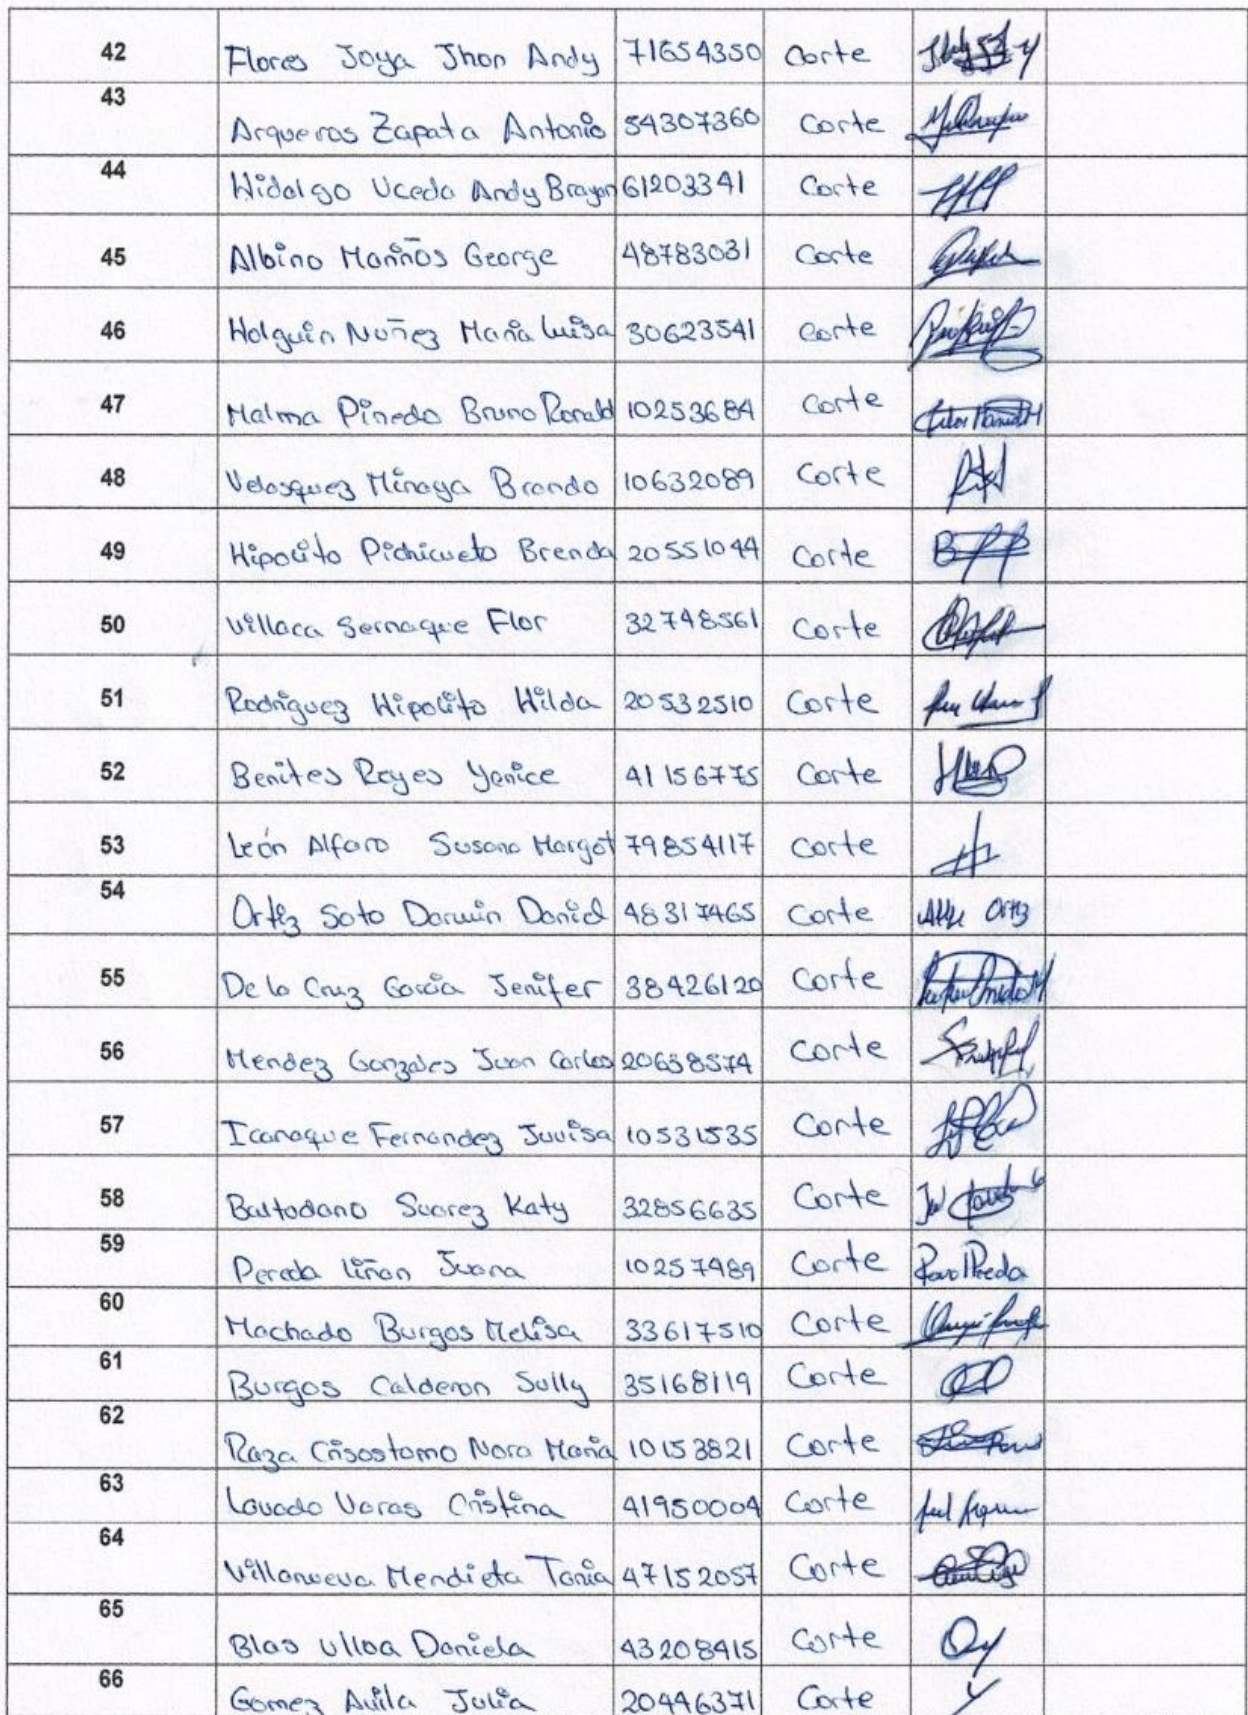 42 Flores Joya Jhon Andy 71654350 Corte
43 Arqueros Zapata Antonio 54307360 Corte
44 Hidalgo Uceda Andy Brayan 61203341 Corte
45 Albino Mariños George 48783031 Corte
46 Holguin Nuñez Maria Luisa 30623541 Corte
47 Malma Pinedo Bruno Ronald 10253684 Corte
48 Velasquez Minaya Brando 10632089 Corte
49 Hipolito Pichicueto Brenda 20551044 Corte
50 Villaca Sernaque Flor 32748561 Corte
51 Rodriguez Hipolito Hilda 20532510 Corte
52 Benites Reyes Yanice 41156775 Corte
53 León Alfaro Susana Margot 79854117 Corte
54 Ortiz Soto Darwin Daniel 48317465 Corte
55 De la Cruz Garcia Jenifer 38426120 Corte
56 Mendez Gonzales Juan Carlos 20638574 Corte
57 Icanaque Fernandez Juvisa 10531535 Corte
58 Baltodano Suarez Katy 32856635 Corte
59 Pereda Liñan Juana 10257489 Corte
60 Machado Burgos Melisa 33617510 Corte
61 Burgos Calderon Sully 35168119 Corte
62 Raza Crisostomo Nora Maria 10153821 Corte
63 Lavado Varas Cristina 41950004 Corte
64 Villanueva Mendieta Tania 47152057 Corte
65 Blas Ulloa Daniela 43208415 Corte
66 Gomez Avila Julia 20446371 Corte